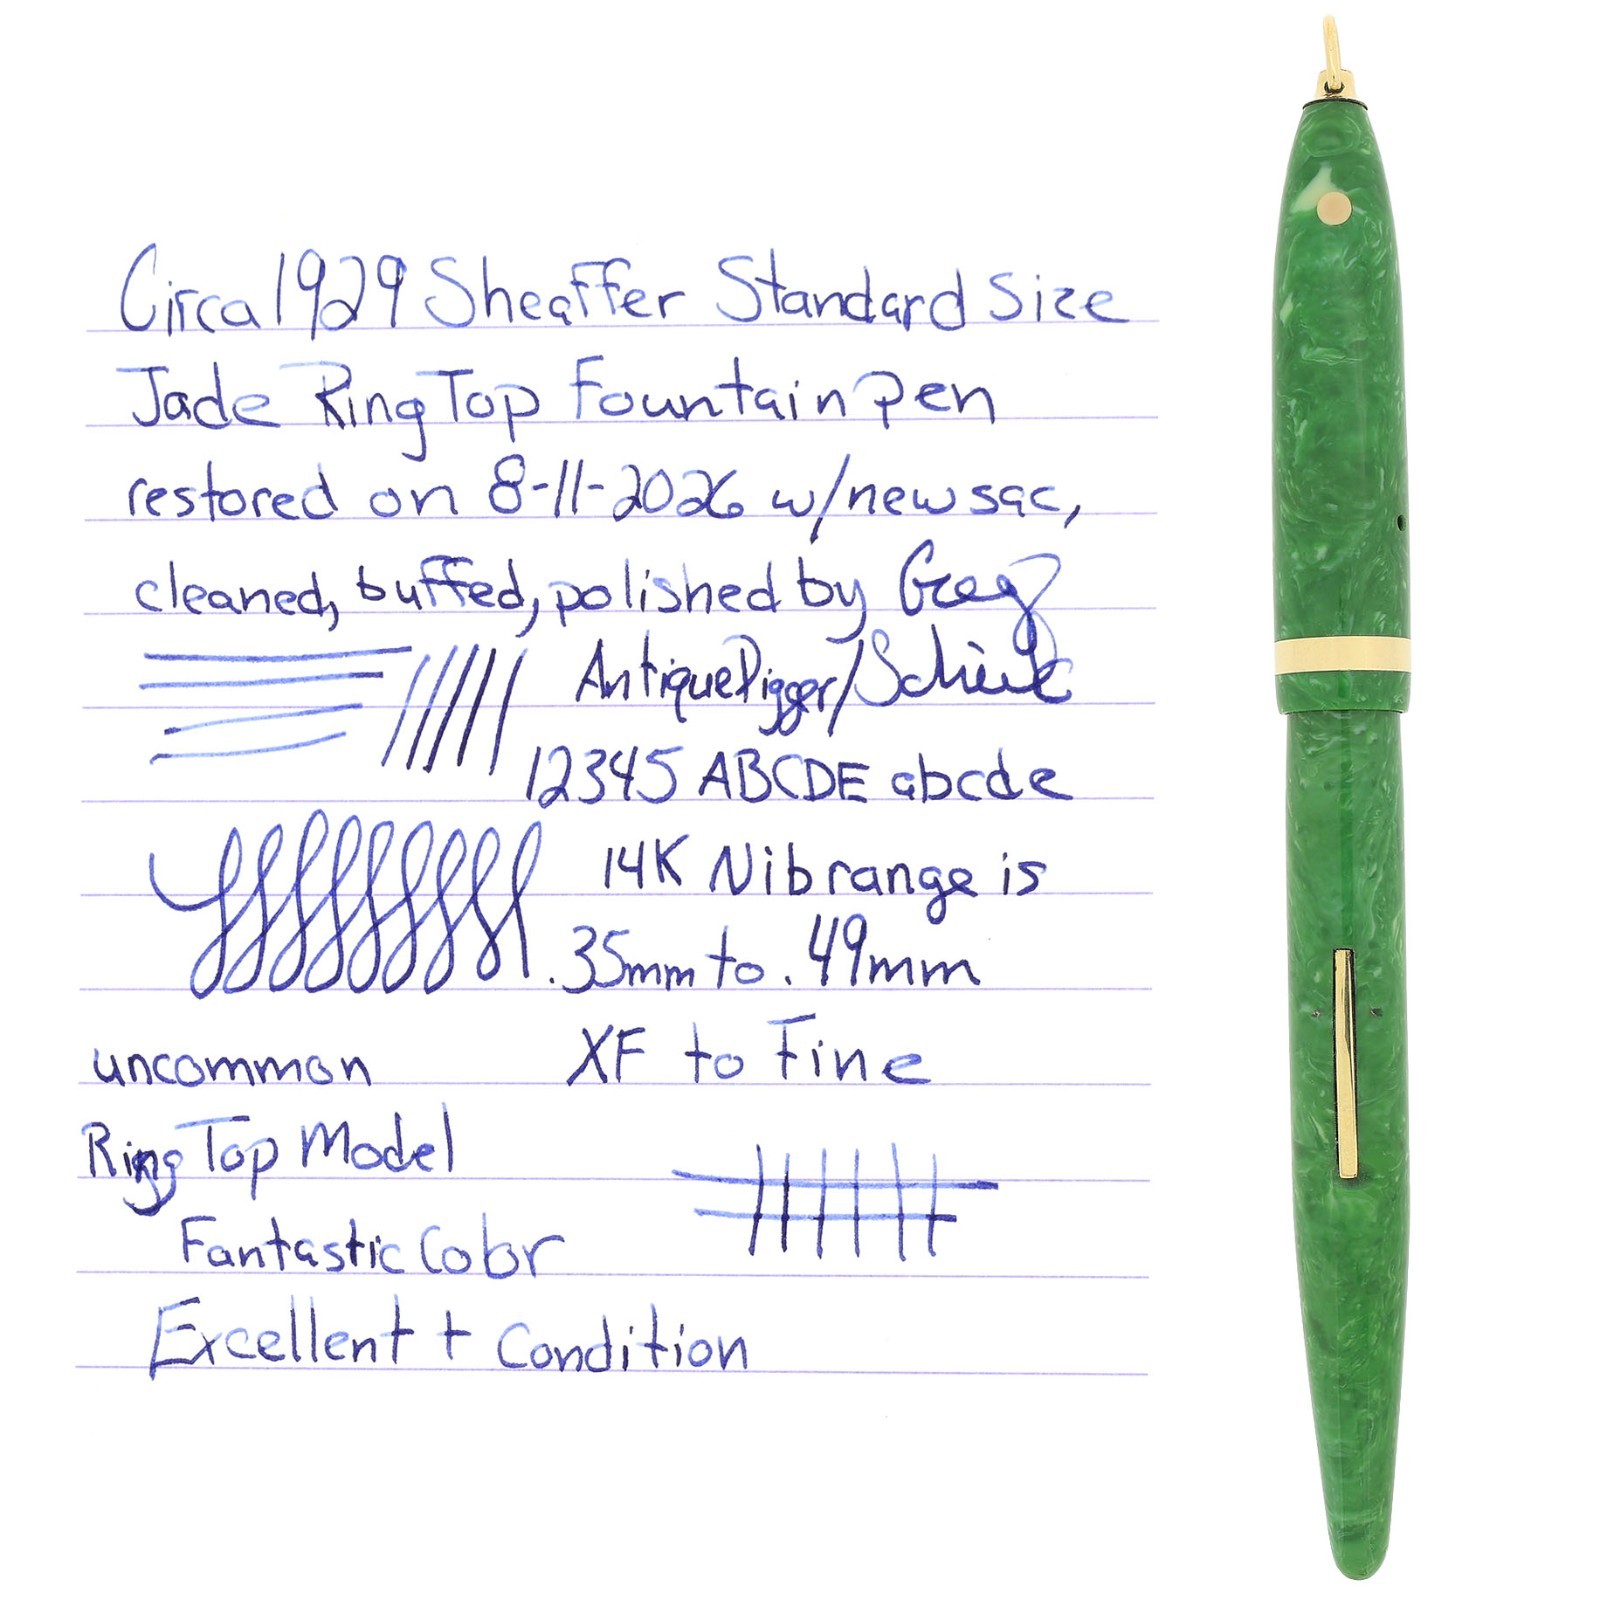 Circa 1929 Sheaffer Standard Size
Jade Ring Top Fountain Pen
restored on 8-11-2026 w/new sac,
cleaned, buffed, polished by Greg
AntiqueDigger/
12345 ABCDE abcde
14K Nib range is
.35mm to .49mm
XF to Fine
uncommon
Ring Top Model
Fantastic Color
Excellent + Condition